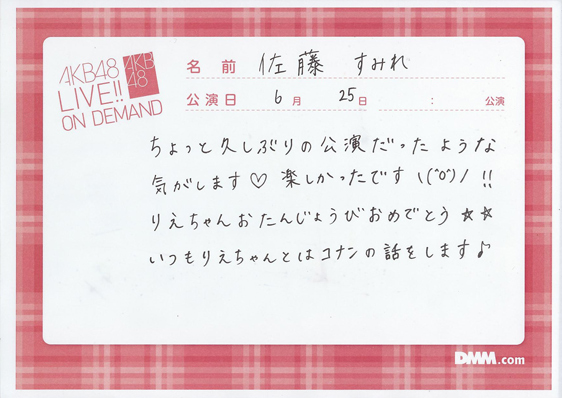 AKB48
LIVE!!
ON DEMAND
AKB
48
名前 佐藤 すみれ
公演日 6月 25日 : 公演
ちょっと久しぶりの公演だったような
気がします♡ 楽しかったです ヽ(^o^)ノ !!
りえちゃんおたんじょうびおめでとう☆☆
いつもりえちゃんとはコナンの話をします♪
DMM.com